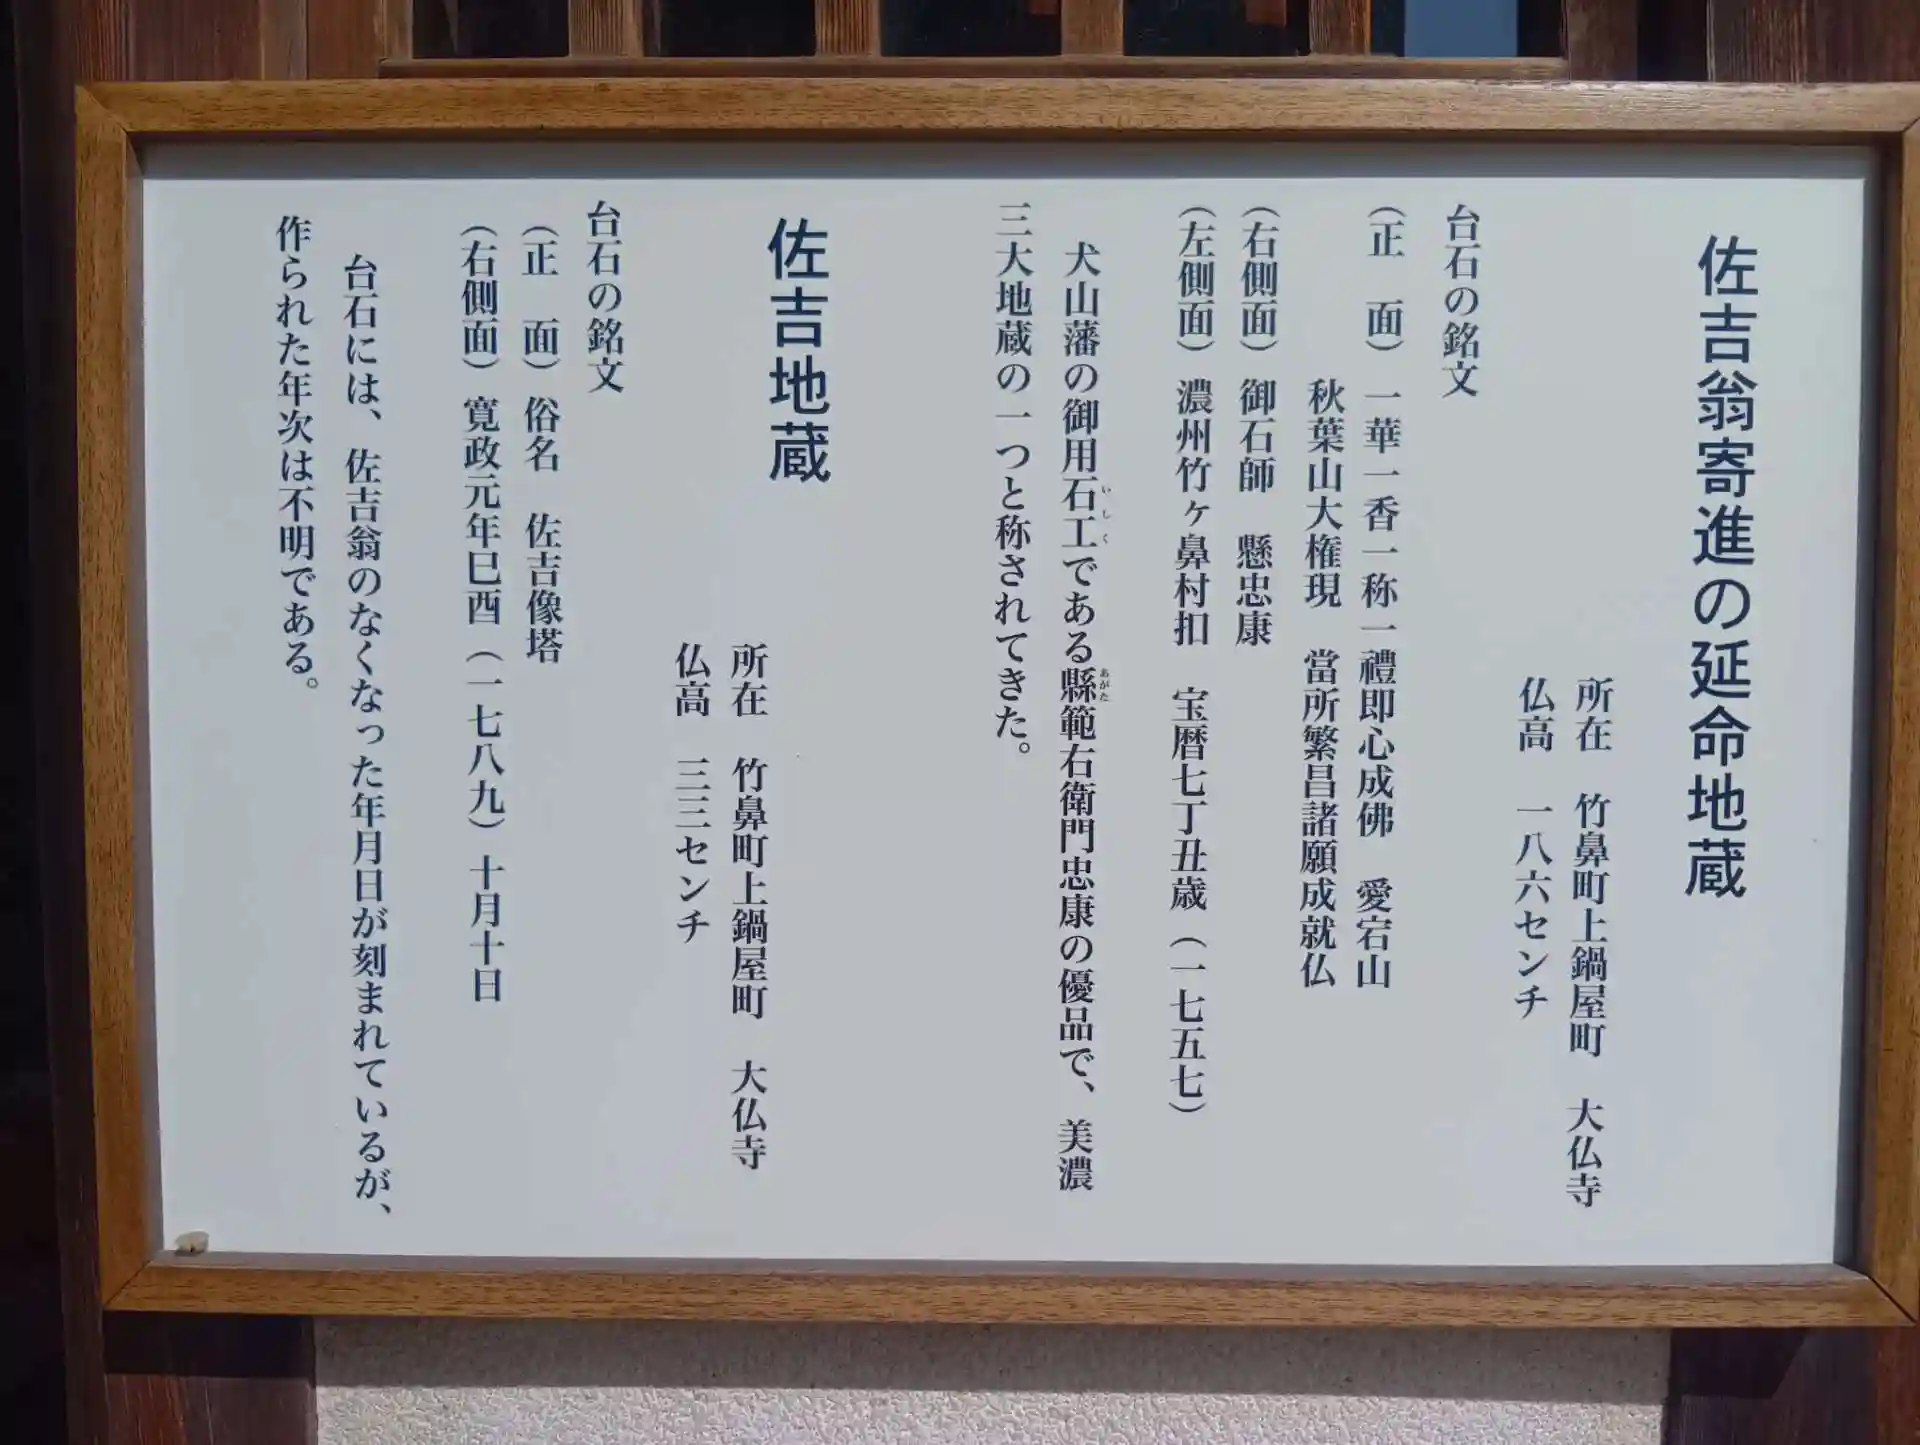 佐吉翁寄進の延命地蔵
所在　竹鼻町上鍋屋町　大仏寺
仏高　一八六センチ
台石の銘文
（正　面）一華一香一称一禮即心成佛　愛宕山
秋葉山大権現　當所繁昌諸願成就仏
（右側面）御石師　懸忠康
（左側面）濃州竹ヶ鼻村扣　宝暦七丁丑歳（一七五七）
犬山藩の御用石工である縣範右衛門忠康の優品で、美濃
三大地蔵の一つと称されてきた。
佐吉地蔵
所在　竹鼻町上鍋屋町　大仏寺
仏高　三三センチ
台石の銘文
（正　面）俗名　佐吉像塔
（右側面）寛政元年巳酉（一七八九）十月十日
台石には、佐吉翁のなくなった年月日が刻まれているが、
作られた年次は不明である。